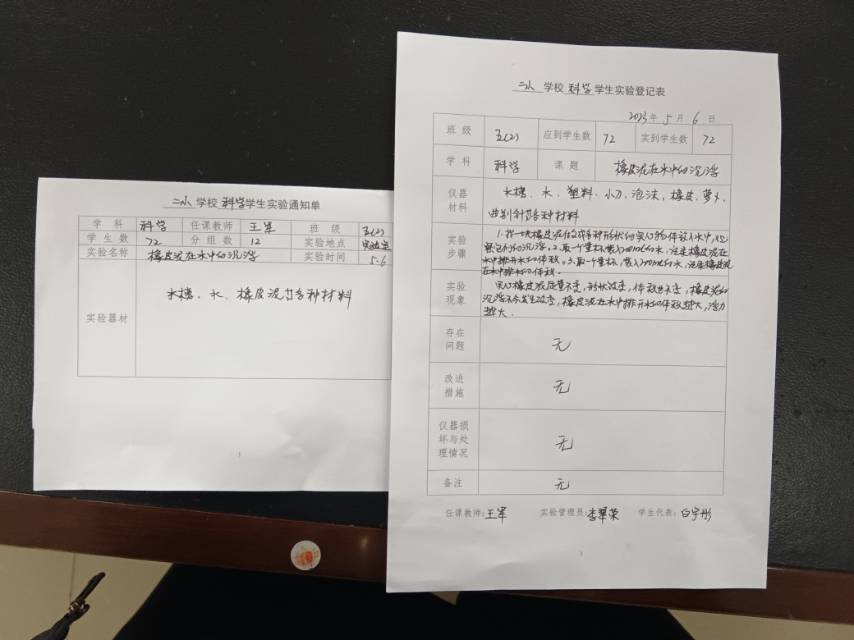 二小 学校 科学 学生实验通知单
学科 科学 任课教师 王军 班级 五(2)
学生数 72 分组数 12 实验地点 实验室
实验名称 橡皮泥在水中的沉浮 实验时间 5.6
实验器材 水槽、水、橡皮泥等各种材料
二小 学校 科学 学生实验登记表
2023年 5月 6日
班级 五(2) 应到学生数 72 实到学生数 72
学科 科学 课题 橡皮泥在水中的沉浮
仪器材料 水槽、水、塑料、小刀、泡沫、橡皮、萝卜、
曲别针等各种材料
实验步骤 1.找一块橡皮泥做成各种形状的实心物体放入水中,
的沉浮。2.取一个量杯,装入 的水,注意橡皮泥在
水中排开水的体积。3.取一个量杯,装入 的水,注意橡皮泥
在水中排水的体积。
实验现象 实心橡皮泥质量不变,形状改变,体积也不变,橡皮泥的
沉浮不会发生改变,橡皮泥在水中排开水的体积越大,浮力
越大。
存在问题 无
改进措施 无
仪器损坏与处理情况 无
备注 无
任课教师:王军 实验管理员:李翠荣 学生代表:白宇彤